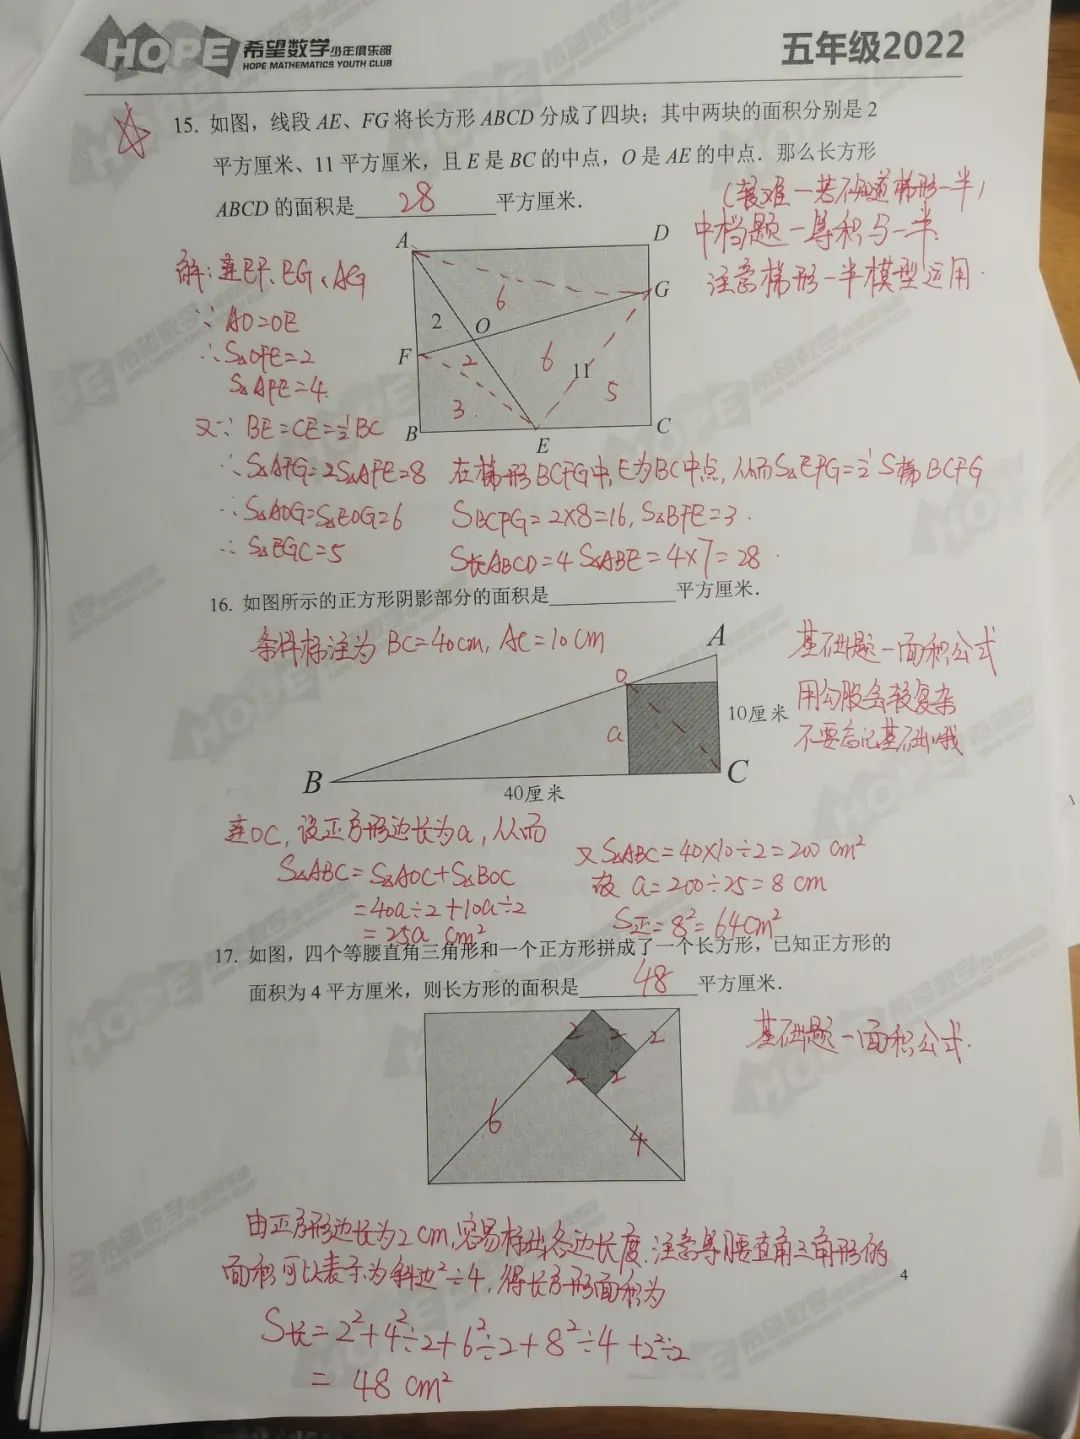 HOPE 希望数学少年俱乐部
HOPE MATHEMATICS YOUTH CLUB
五年级2022
15. 如图，线段 AE、FG 将长方形 ABCD 分成了四块；其中两块的面积分别是 2
平方厘米、11 平方厘米，且 E 是 BC 的中点，O 是 AE 的中点．那么长方形
ABCD 的面积是 28 平方厘米．
(较难一若不知道梯形一半)
中档题一等积与一半.
注意梯形一半模型运用.
A
D
G
6
2
O
F
2
6
11
5
3
B
E
C
解：连EF、EG、AG
∵ AO=OE
∴ S△OFE=2
S△AFE=4.
又∵ BE=CE=½BC
∴ S△AFG=2S△AFE=8
∴ S△AOG=S△EOG=6
∴ S△EGC=5
在梯形BCFG中,E为BC中点,从而S△EFG=½S梯BCFG
SBCFG=2×8=16, S△BFE=3.
S长ABCD=4S△ABE=4×7=28.
16. 如图所示的正方形阴影部分的面积是 平方厘米．
条件标注为 BC=40cm, AC=10cm
基础题一面积公式
用勾股会较复杂
不要忘记基础哦
A
O
a
10厘米
B
C
40厘米
连OC, 设正方形边长为a, 从而
S△ABC=S△AOC+S△BOC
=40a÷2+10a÷2
=25a cm²
又S△ABC=40×10÷2=200 cm²
故 a=200÷25=8 cm
S正=8²=64cm²
17. 如图，四个等腰直角三角形和一个正方形拼成了一个长方形，已知正方形的
面积为 4 平方厘米，则长方形的面积是 48 平方厘米．
基础题一面积公式.
2 2 2
2 2
6
4
由正方形边长为2cm,容易标出各边长度.注意等腰直角三角形的
面积可以表示为斜边²÷4, 得长方形面积为
S长=2²+4²÷2+6²÷2+8²÷4+2²÷2
= 48 cm²
4